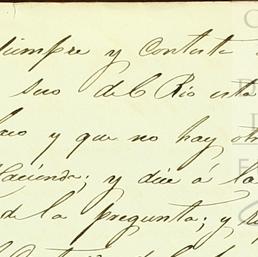 siempre y conteste
seo del Rio esta
y que no hay otr
Hacienda; y dice á la
de la pregunta; y se